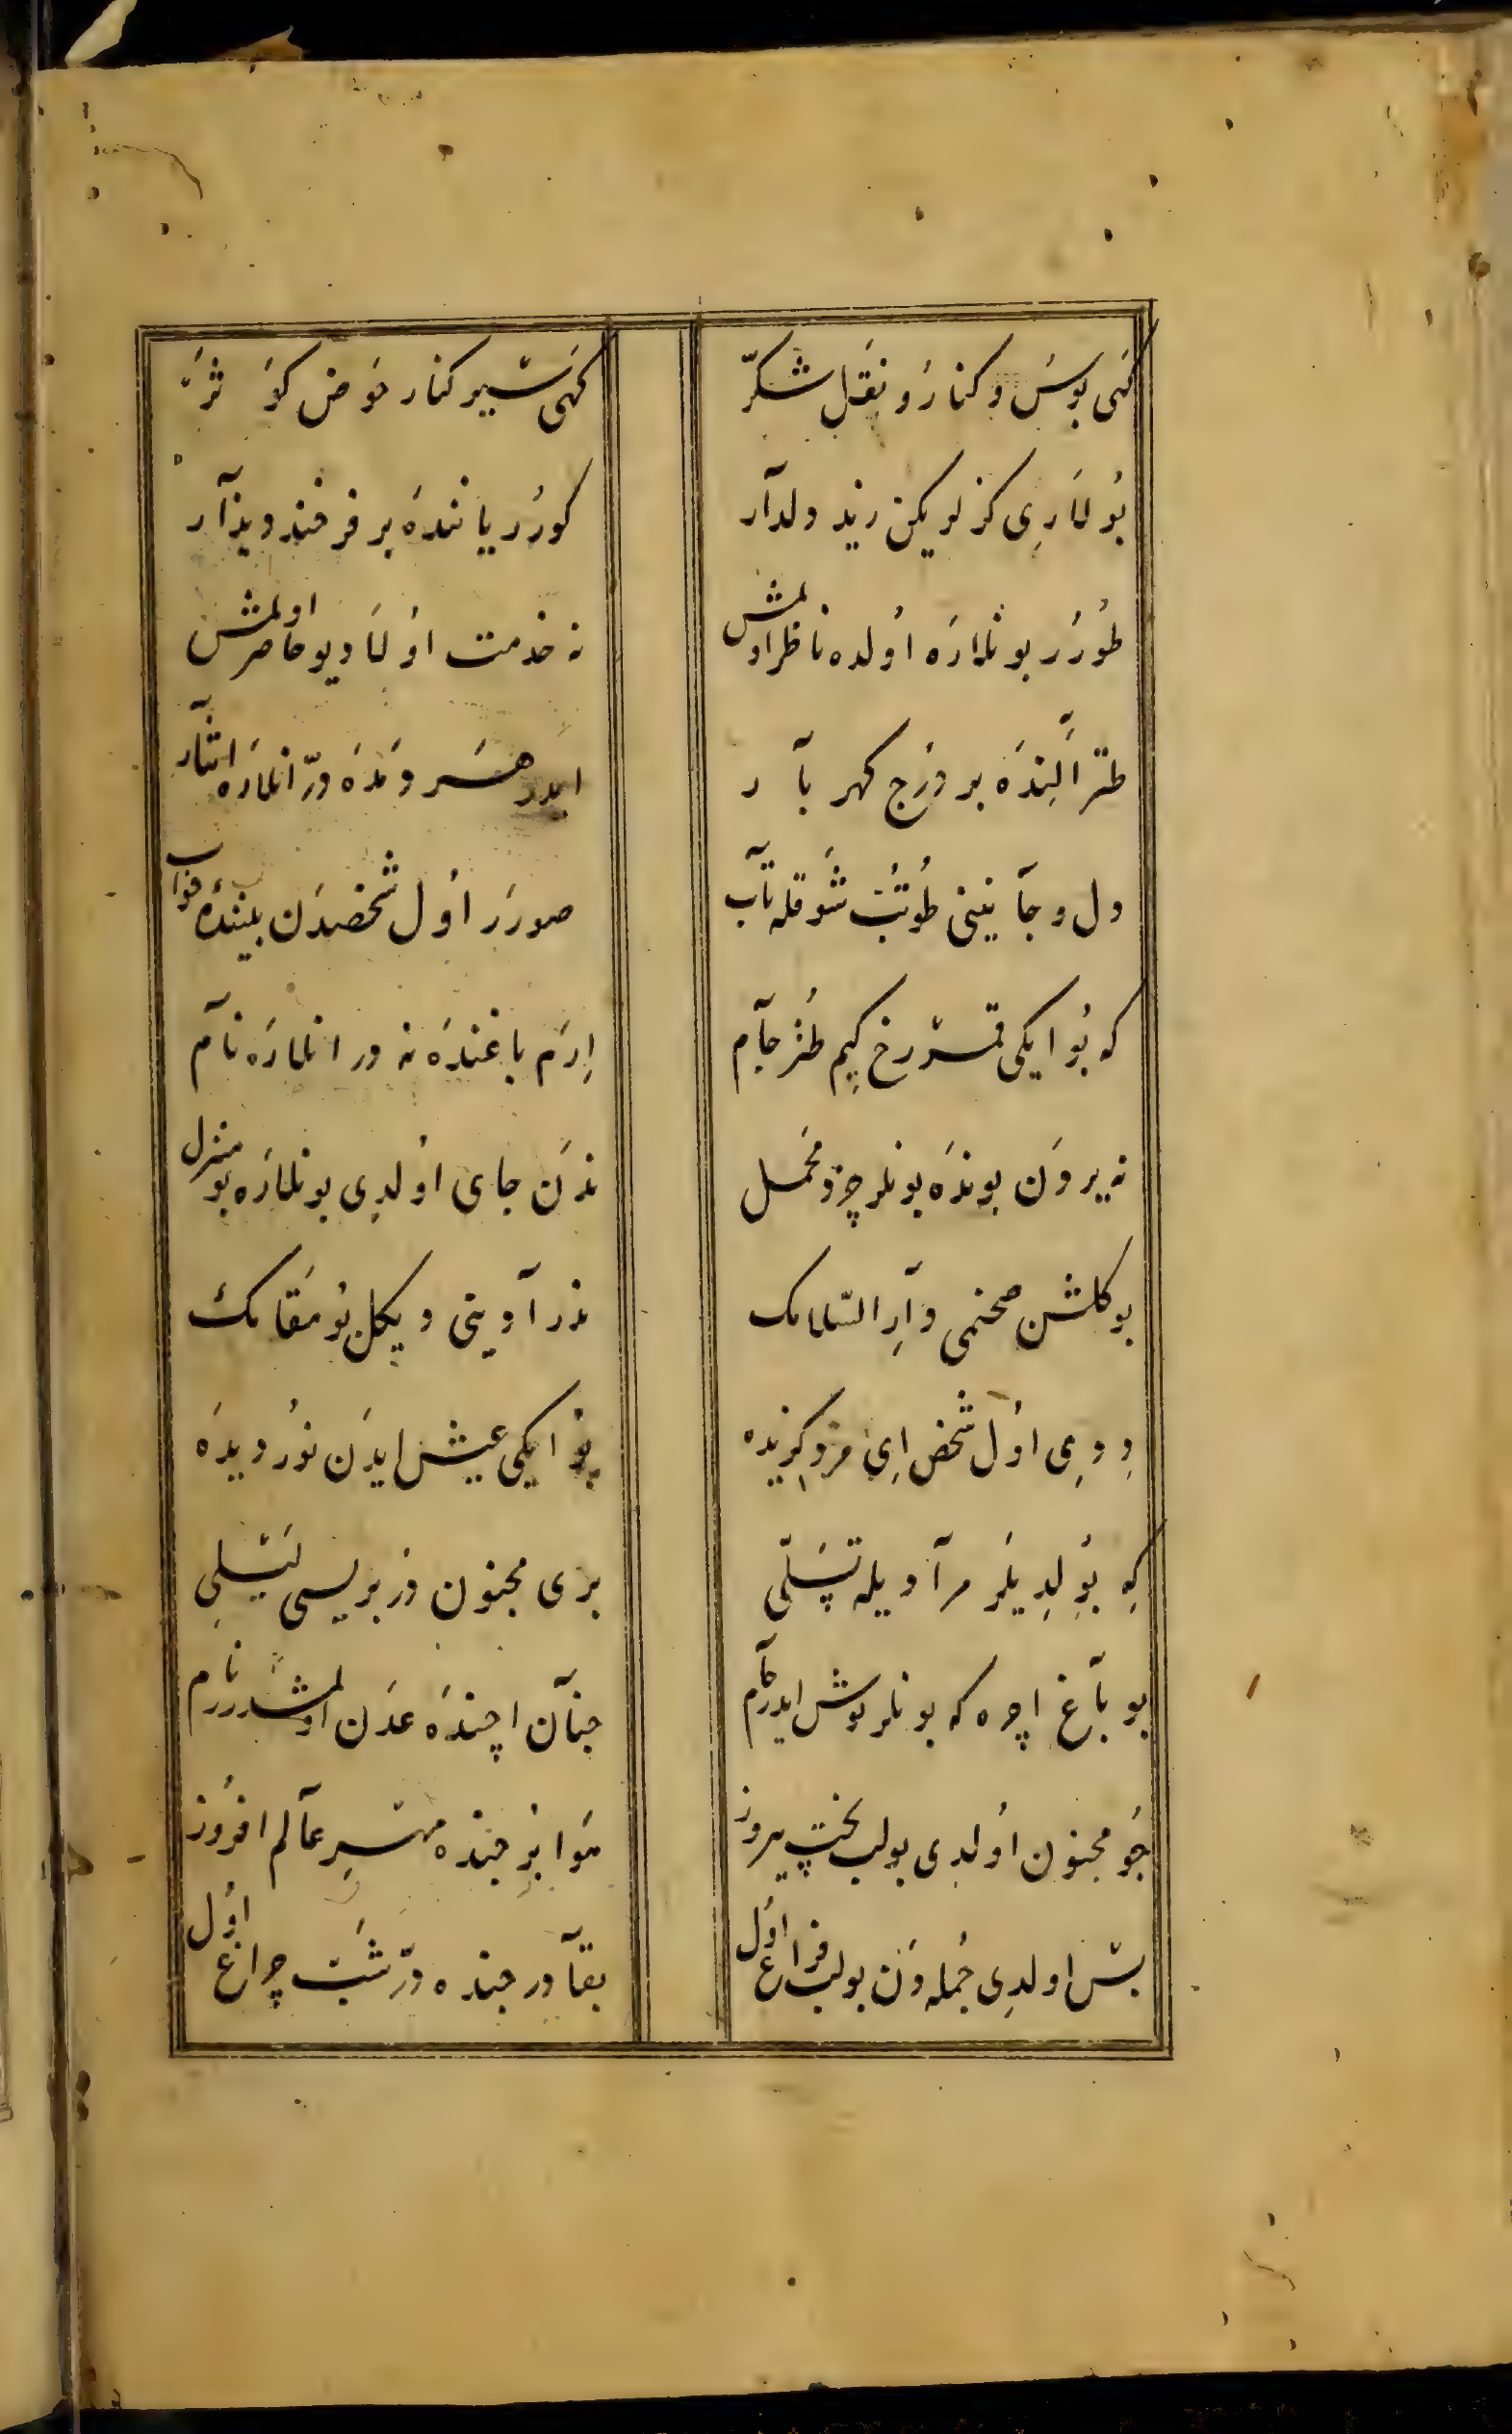 كهی بوسَ و كنارُ و نقَل شكرّ
كهی سَیر كنار حَوض كوَثرَ
بُولَارِی كزلریكن رند دلدآر
كورُر یاننده بر فرخنده دیدآر
طوُرُر بونلارَه اوُلده ناظر اولمش
نه خدمت اوُلسَا دیو حاضر اولمش
طترَ الَندَه بر درُج كهر بآر
ایدر هَر دَمدَه درّ انلارَه ایثآر
دل و جآنینی طوُتُب شَوقله تآب
صورَر اوُل شخصدَن بیننده خواب
كه بُو ایكی قمَر رخ كیم طتُر جآم
اِرَم باغندَه نه در انلارَه نآم
نه یردَن بوندَه بونلر چزد محمل
ندَن جای اوُلدی بونلارَه بو منزل
بو كلشن صحنمی دآرِ السّلامك
ندر آدینی دیكل بُو مَقامك
دِدِی اوُل شخص ای مرد كزیده
بو ایكی عیش ایدَن نوُر دیدَه
كِه بوُلدِیلَر مرآدیله تسَلّی
بری مجنون دُر بریسی لَیلِی
بو بآغ اچره كه بونلر نوش ایدر جآم
جنآن اچندَه عدَن اولمشدرر نام
چوُ مجنون اوُلدی بولب بخت پیروز
هَوا برجنده مهَرِ عآلم افروُز
بسَ اولدِی جُمله دَن بولب فراغ اوُل
بقآ درجنده درّ شَب چراغ اوُل